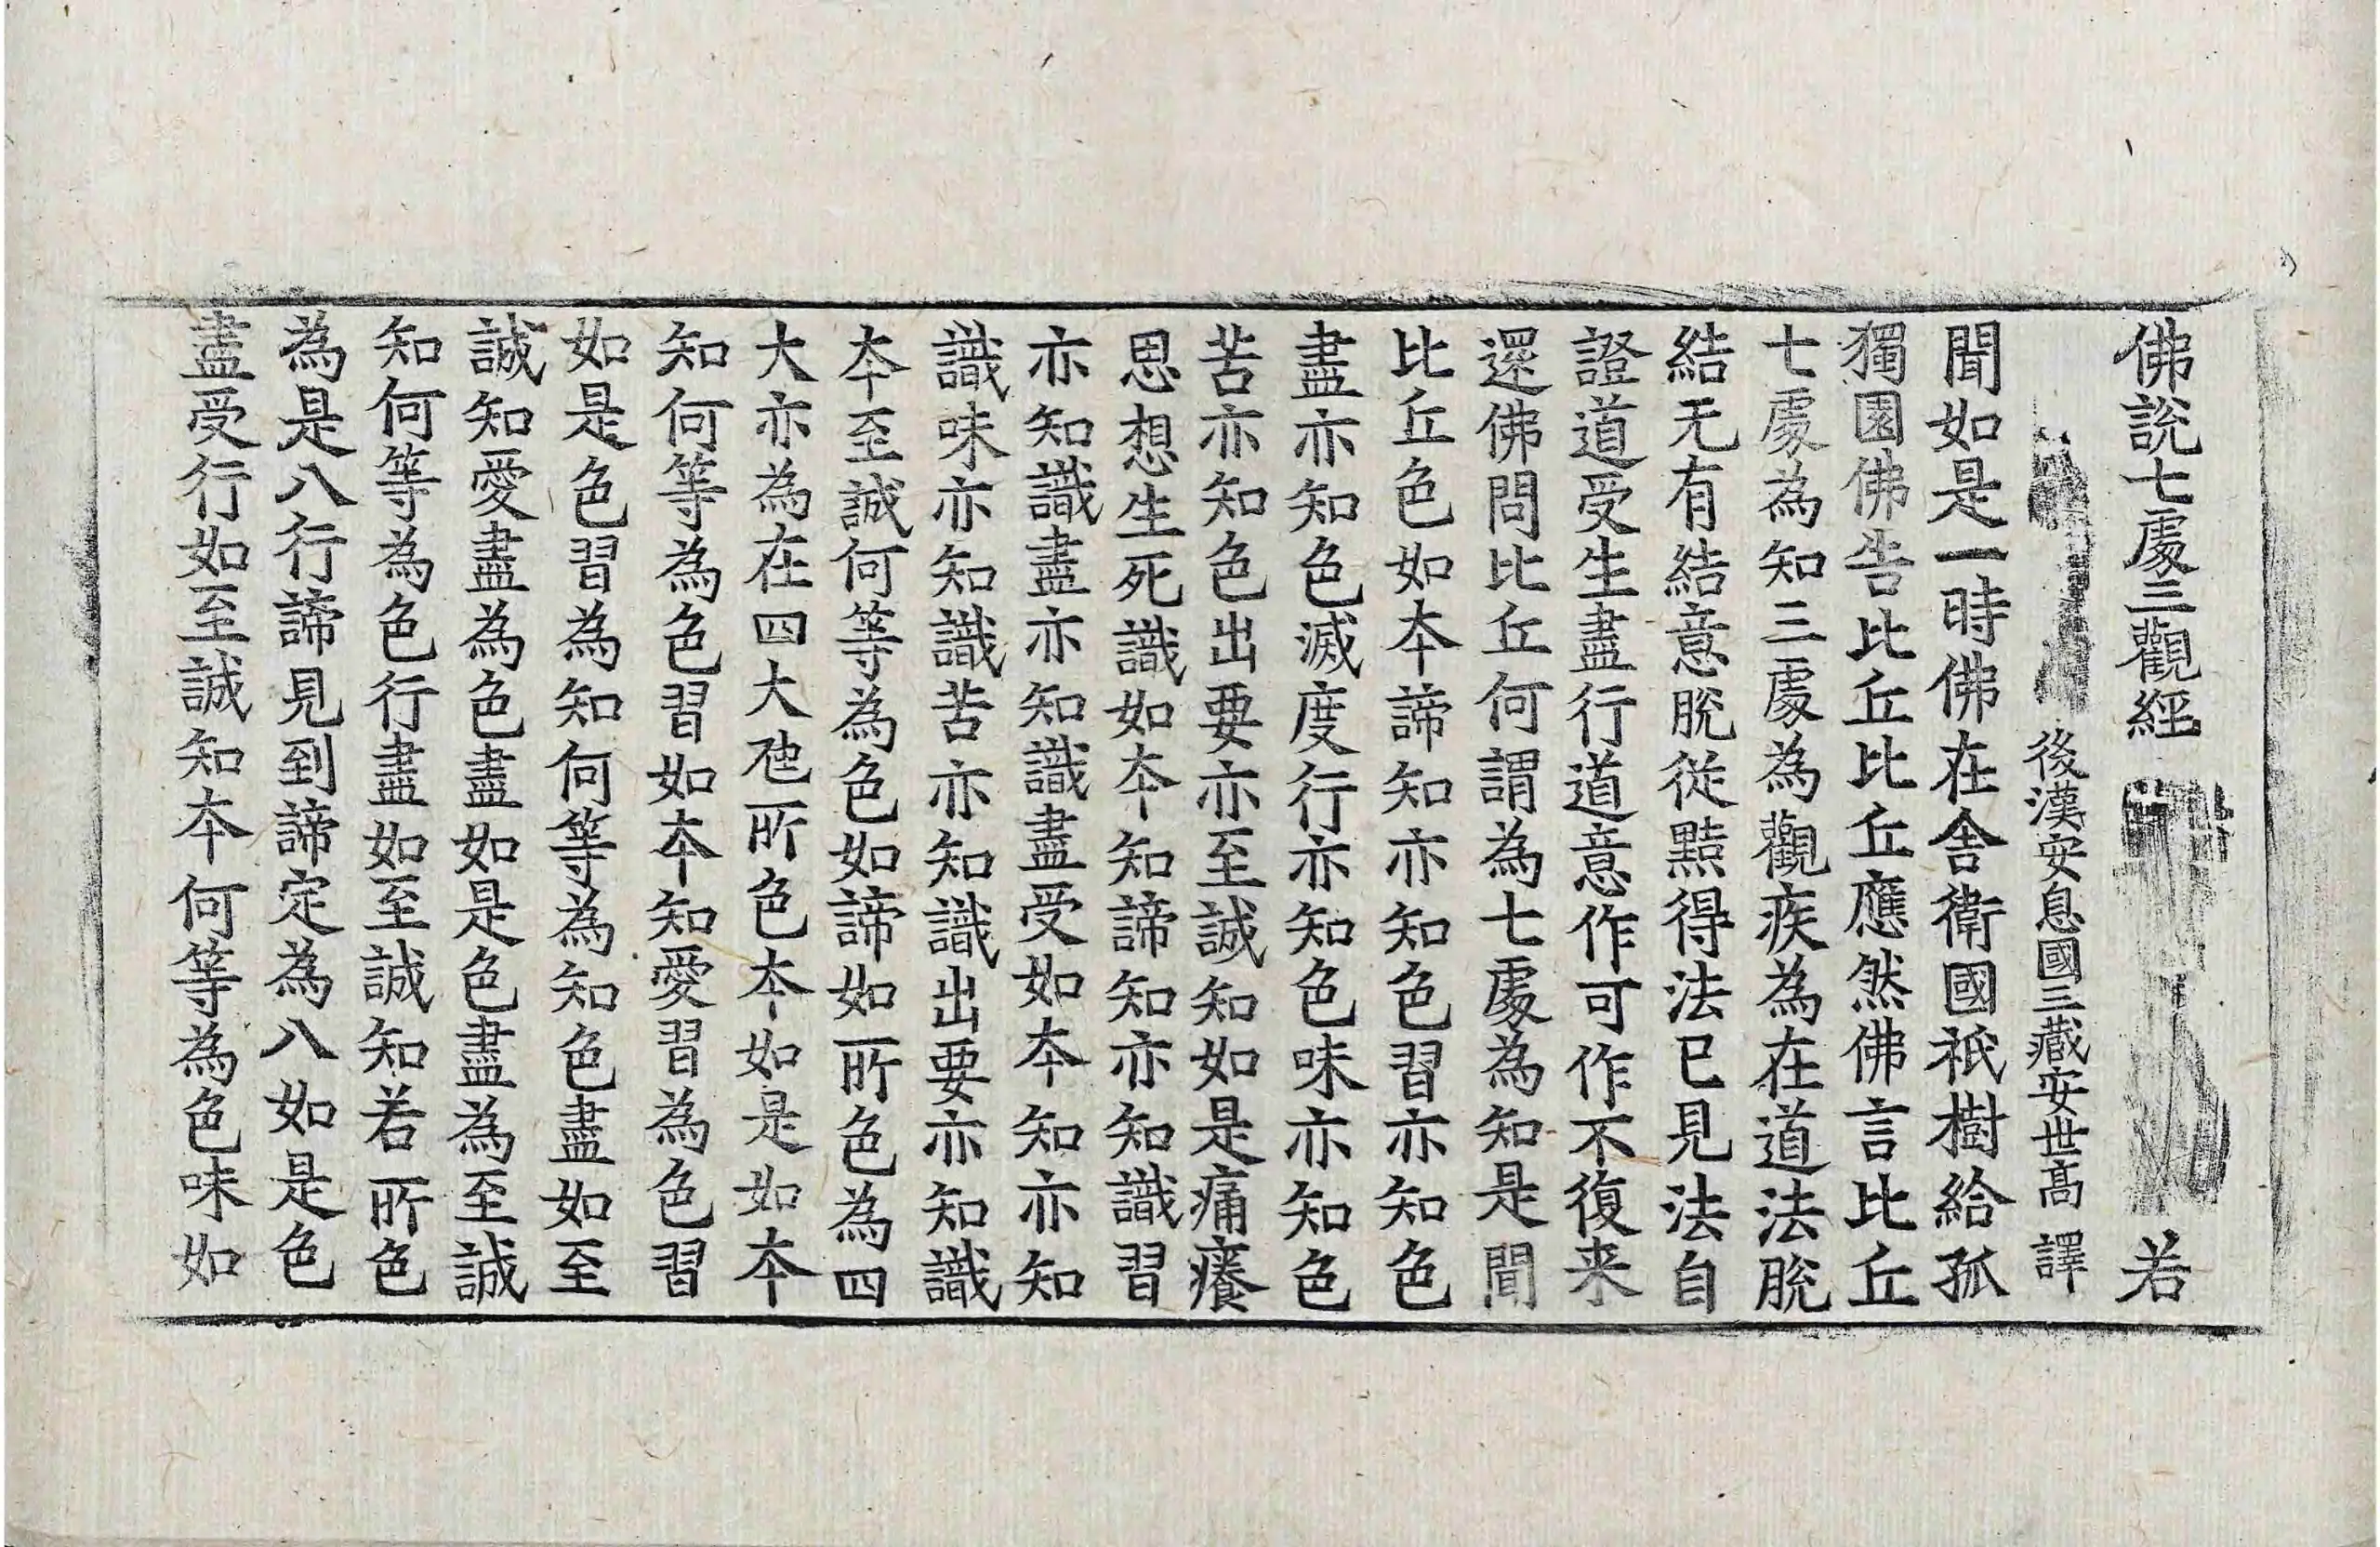 佛說七處三觀經 若
後漢安息國三藏安世高 譯
聞如是一時佛在舍衛國祇樹給孤
獨園佛告比丘比丘應然佛言比丘
七處為知三處為觀疾為在道法脫
結无有結意脫從黠得法已見法自
證道受生盡行道意作可作不復来
還佛問比丘何謂為七處為知是聞
比丘色如本諦知亦知色習亦知色
盡亦知色滅度行亦知色味亦知色
苦亦知色出要亦至誠知如是痛癢
思想生死識如本知諦知亦知識習
亦知識盡亦知識盡受如本知亦知
識味亦知識苦亦知識出要亦知識
本至誠何等為色如諦如所色為四
大亦為在四大虺所色本如是如本
知何等為色習如本知愛習為色習
如是色習為知何等為知色盡如至
誠知愛盡為色盡如是色盡為至誠
知何等為色行盡如至誠知若所色
為是八行諦見到諦定為八如是色
盡受行如至誠知本何等為色味如